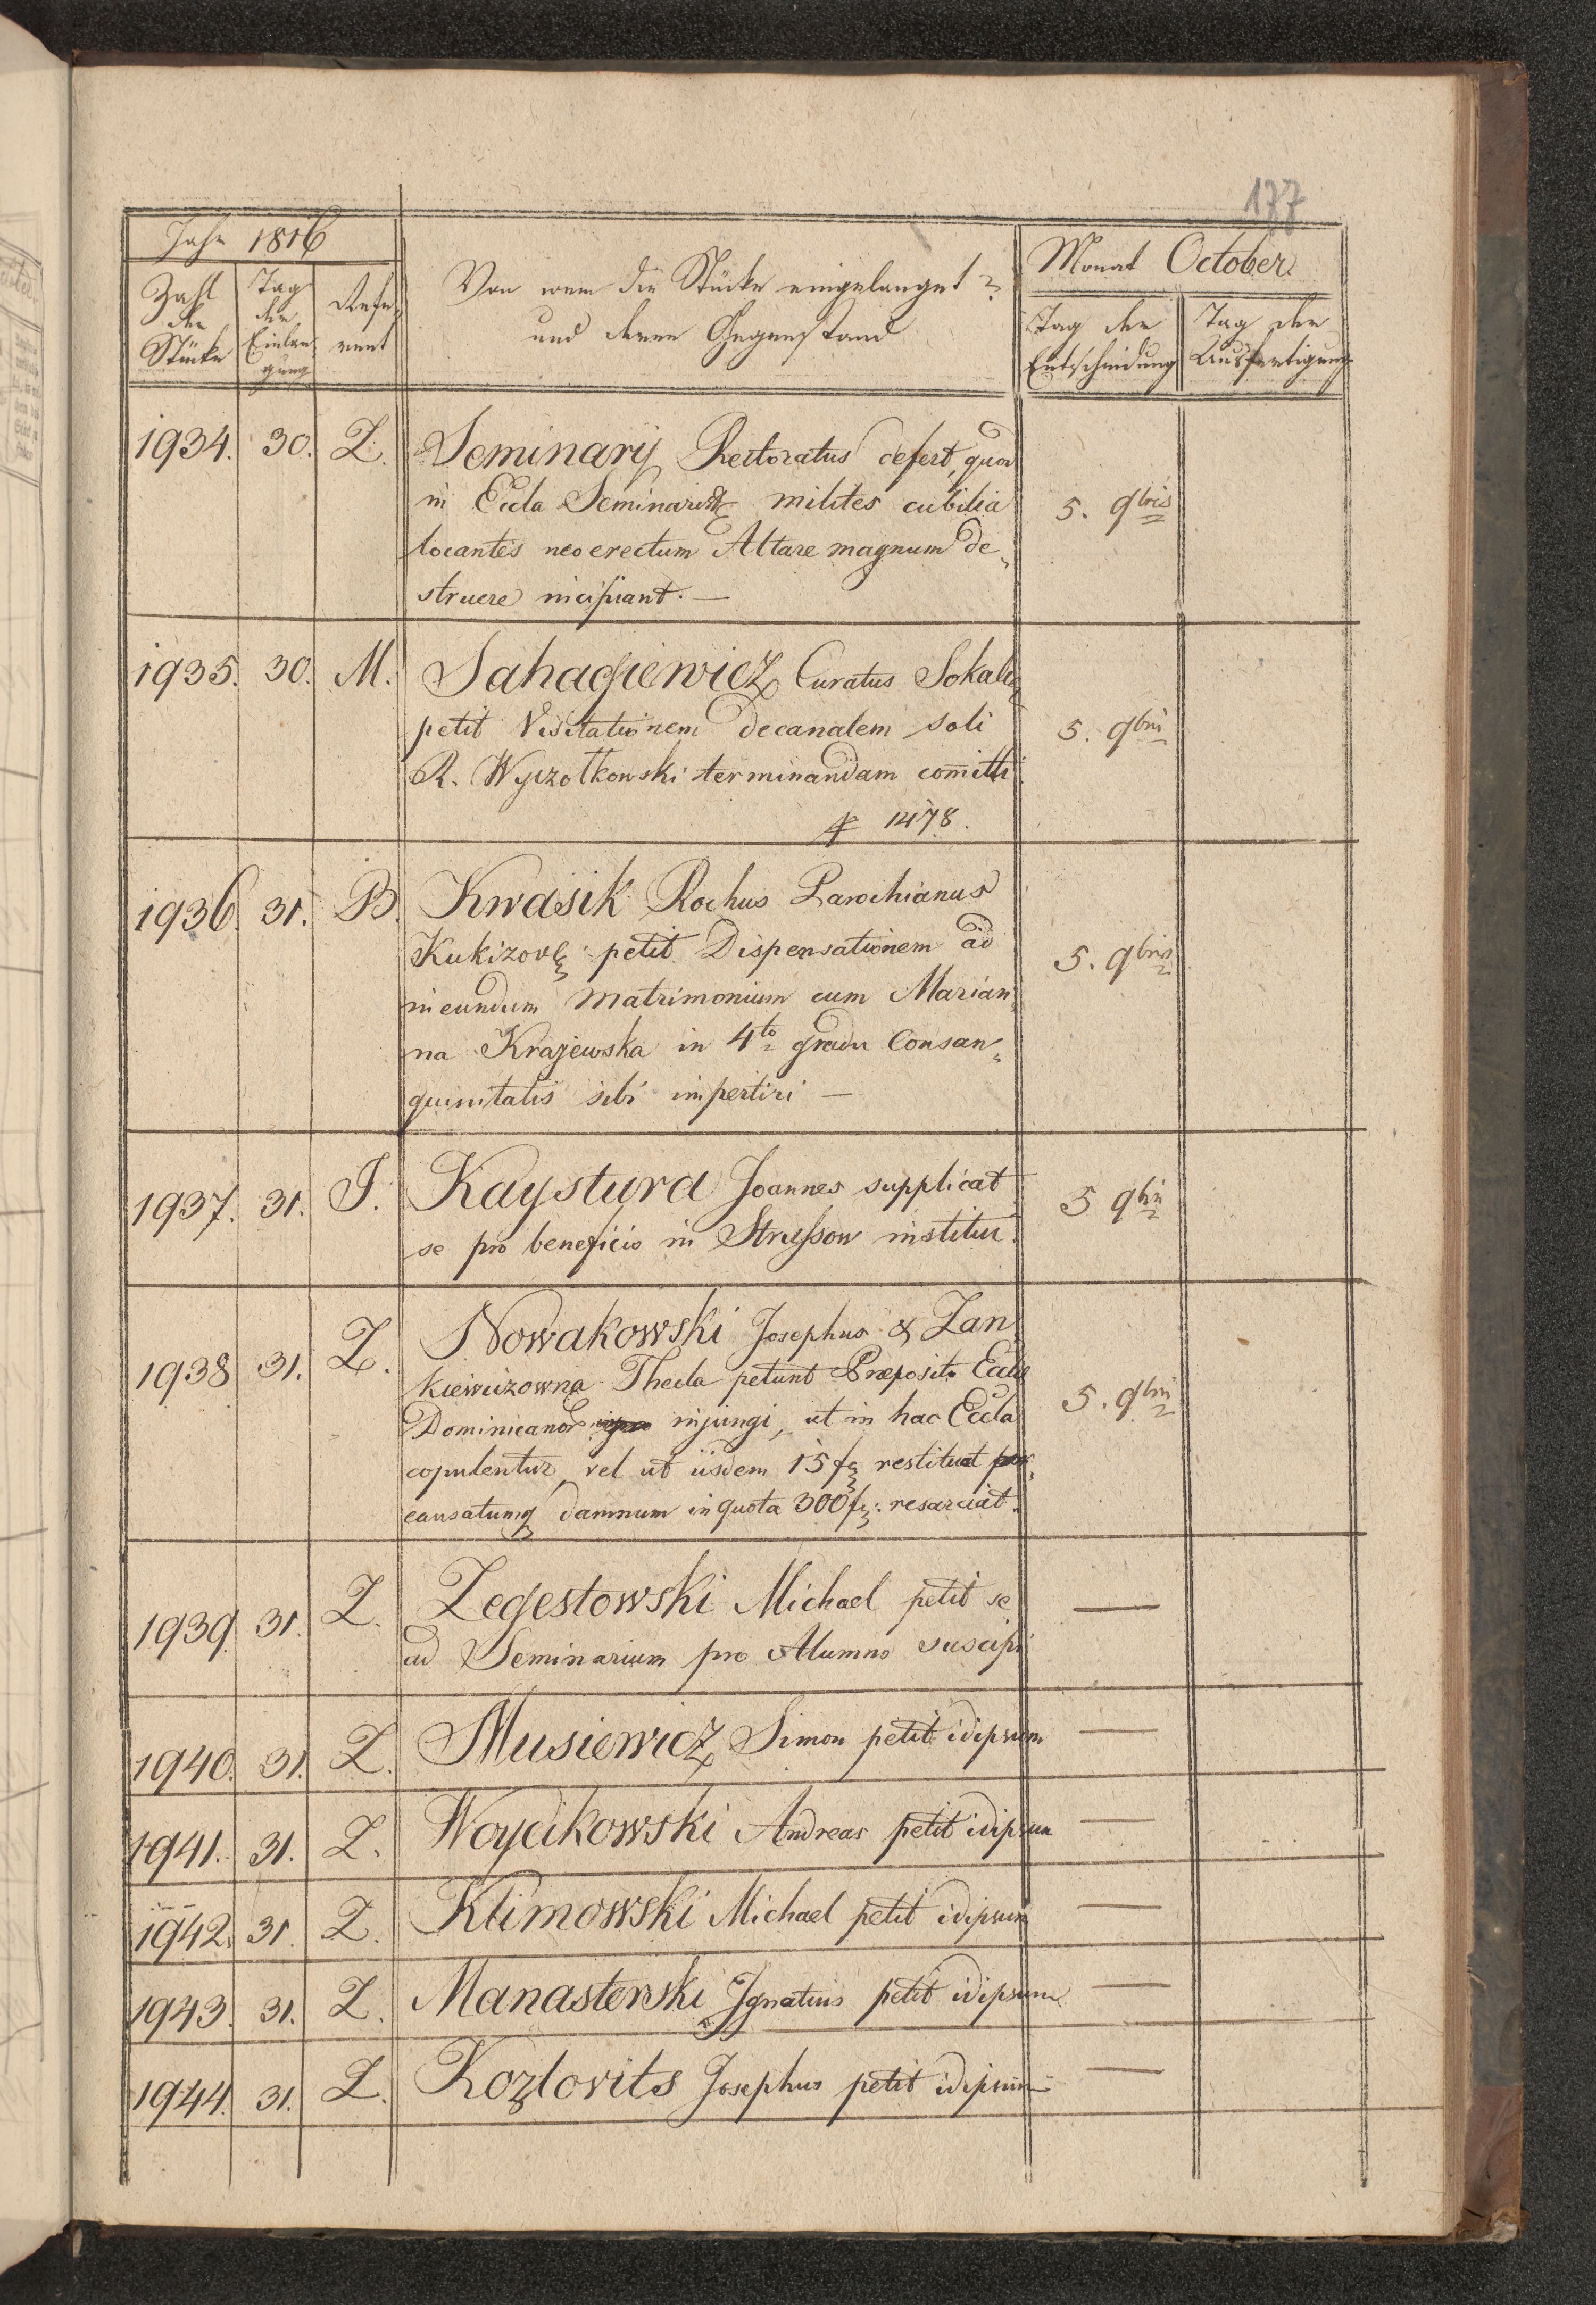 177
Jahr 1816
Monat October
Zahl der Stücke
Tag der Einlangung
Referent
Von wem die Stücke eingelanget?
und deren Gegenstand
Tag der Entscheidung
Tag der Ausfertigung
1934. 30. Z. Seminarij Rectoratus defert, quod
in Eccla Seminarii milites cubilia
5. 9bris
locantes neoerectum Altare magnum de„
struere incipiant. —
1935. 30. M. Sahagiewicz Curatus Sokal
petit Visitationem decanalem soli
5. 9bris
R. Wyczołkowski terminandam comitti
1478.
1936. 31. B. Kwasik Rochus Parochianus
Kukizov petit Dispensationem ad
5. 9bris
ineundum Matrimonium cum Marian„
na Krajewska in 4to gradu Consan„
guinitatis sibi impertiri —
1937. 31. J. Kaystura Joannes supplicat
5 9bris
se pro beneficio in Strusson institui.
1938 31. Z. Nowakowski Josephus & Zan
kiewiczowna Thecla petunt Præposito Eccle
Dominicanor injungi, ut in hac Eccla
5. 9bris
copulentur, vel ut iisdem 15 f restituat
causatumq damnum in quota 300 f: resarciat.
1939. 31. Z. Zegestowski Michael petit se —
ad Seminarium pro Alumno suscipi
1940. 31. Z. Musiewicz Simon petit idipsum —
1941. 31. Z. Woycikowski Andreas petit idipsum —
1942. 31. Z. Klimowski Michael petit idipsum —
1943. 31. Z. Manasterski Ignatius petit idipsum —
1944. 31. Z. Kozlovits Josephus petit idipsum —